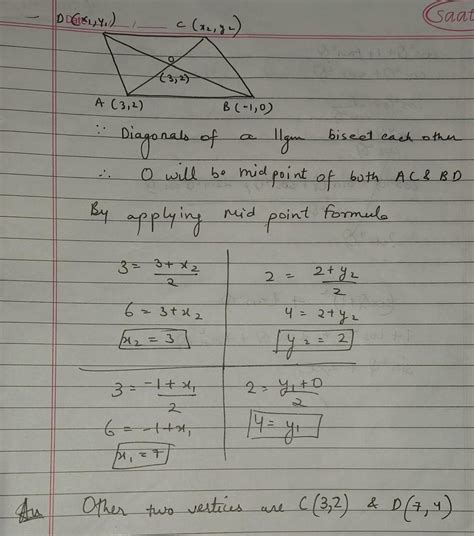 D (x₁, y₁) C (x₂, y₂) Saat
O
(3,2)
A (3,2) B (-1,0)
∵ Diagonals of a llgm bisect each other
∴ O will be midpoint of both AC & BD
By applying mid point formula
3 = (3 + x₂)/2 2 = (2 + y₂)/2
6 = 3 + x₂ 4 = 2 + y₂
x₂ = 3 y₂ = 2
3 = (-1 + x₁)/2 2 = (y₁ + 0)/2
6 = -1 + x₁ 4 = y₁
x₁ = 7
Ans Other two vertices are C(3,2) & D(7,4)